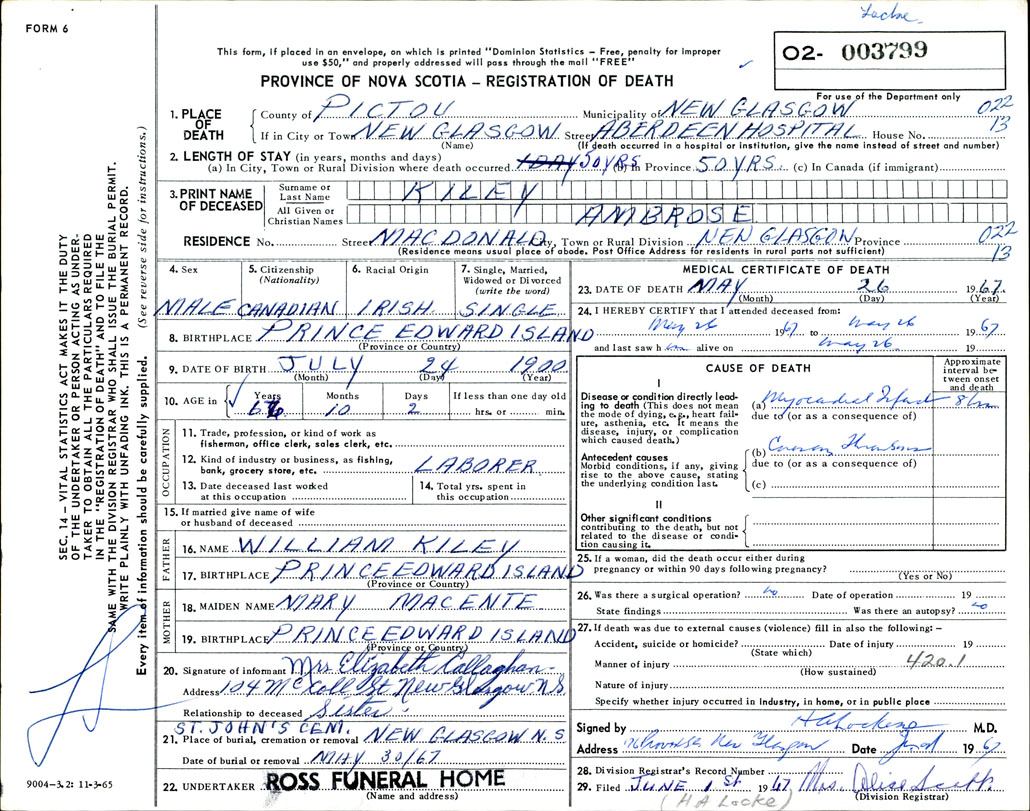 Locke
FORM 6
This form, if placed in an envelope, on which is printed "Dominion Statistics – Free, penalty for improper
use $50," and properly addressed will pass through the mail "FREE"
O2- 003799
PROVINCE OF NOVA SCOTIA – REGISTRATION OF DEATH
For use of the Department only
1. PLACE OF DEATH
County of PICTOU Municipality of NEW GLASGOW 022
If in City or Town NEW GLASGOW Street ABERDEEN HOSPITAL House No. 13
(Name) (If death occurred in a hospital or institution, give the name instead of street and number)
2. LENGTH OF STAY (in years, months and days)
(a) In City, Town or Rural Division where death occurred 1 DAY 50 YRS (b) In Province 50 YRS. (c) In Canada (if immigrant)
3. PRINT NAME OF DECEASED
Surname or Last Name KILEY
All Given or Christian Names AMBROSE
RESIDENCE No. Street MACDONALD City, Town or Rural Division NEW GLASGOW Province 022
(Residence means usual place of abode. Post Office Address for residents in rural parts not sufficient) 13
4. Sex MALE
5. Citizenship (Nationality) CANADIAN
6. Racial Origin IRISH
7. Single, Married, Widowed or Divorced (write the word) SINGLE
8. BIRTHPLACE PRINCE EDWARD ISLAND
(Province or Country)
9. DATE OF BIRTH JULY 24 1900
(Month) (Day) (Year)
10. AGE in Years 66 Months 10 Days 2 If less than one day old hrs. or min.
OCCUPATION
11. Trade, profession, or kind of work as
fisherman, office clerk, sales clerk, etc.
12. Kind of industry or business, as fishing,
bank, grocery store, etc. LABORER
13. Date deceased last worked
at this occupation
14. Total yrs. spent in
this occupation
15. If married give name of wife
or husband of deceased
FATHER
16. NAME WILLIAM KILEY
17. BIRTHPLACE PRINCE EDWARD ISLAND
(Province or Country)
MOTHER
18. MAIDEN NAME MARY MACENTE
19. BIRTHPLACE PRINCE EDWARD ISLAND
(Province or Country)
20. Signature of informant Mrs Elizabeth Callaghan
Address 104 McColl St New Glasgow N.S.
Relationship to deceased Sister
ST. JOHN'S CEM.
21. Place of burial, cremation or removal NEW GLASGOW N S
Date of burial or removal MAY 30/67
22. UNDERTAKER ROSS FUNERAL HOME
(Name and address)
MEDICAL CERTIFICATE OF DEATH
23. DATE OF DEATH MAY 26 1967.
(Month) (Day) (Year)
24. I HEREBY CERTIFY that I attended deceased from:
May 26 1967 to May 26 1967
and last saw h im alive on May 26. 19
CAUSE OF DEATH
Approximate interval between onset and death
I
Disease or condition directly lead-
ing to death (This does not mean
the mode of dying, e.g., heart fail-
ure, asthenia, etc. It means the
disease, injury, or complication
which caused death.)
(a) Myocardial Infarct
due to (or as a consequence of)
Antecedent causes
Morbid conditions, if any, giving
rise to the above cause, stating
the underlying condition last.
(b) Coronary Thrombosis
due to (or as a consequence of)
(c)
II
Other significant conditions
contributing to the death, but not
related to the disease or condi-
tion causing it.
25. If a woman, did the death occur either during
pregnancy or within 90 days following pregnancy?
(Yes or No)
26. Was there a surgical operation? no Date of operation 19
State findings Was there an autopsy? no
27. If death was due to external causes (violence) fill in also the following: –
Accident, suicide or homicide? Date of injury 19
(State which)
Manner of injury 420.1
(How sustained)
Nature of injury
Specify whether injury occurred in industry, in home, or in public place
Signed by M.D.
Address New Glasgow Date 1967
28. Division Registrar's Record Number
29. Filed JUNE 1st 1967 Mrs. Alice
(H A Locke) (Division Registrar)
SEC. 14 – VITAL STATISTICS ACT MAKES IT THE DUTY
OF THE UNDERTAKER OR PERSON ACTING AS UNDER-
TAKER TO OBTAIN ALL THE PARTICULARS REQUIRED
IN THE "REGISTRATION OF DEATH" AND TO FILE THE
SAME WITH THE DIVISION REGISTRAR WHO SHALL ISSUE THE BURIAL PERMIT.
WRITE PLAINLY WITH UNFADING INK. THIS IS A PERMANENT RECORD.
Every item of information should be carefully supplied. (See reverse side for instructions.)
9004-3.2: 11-3-65